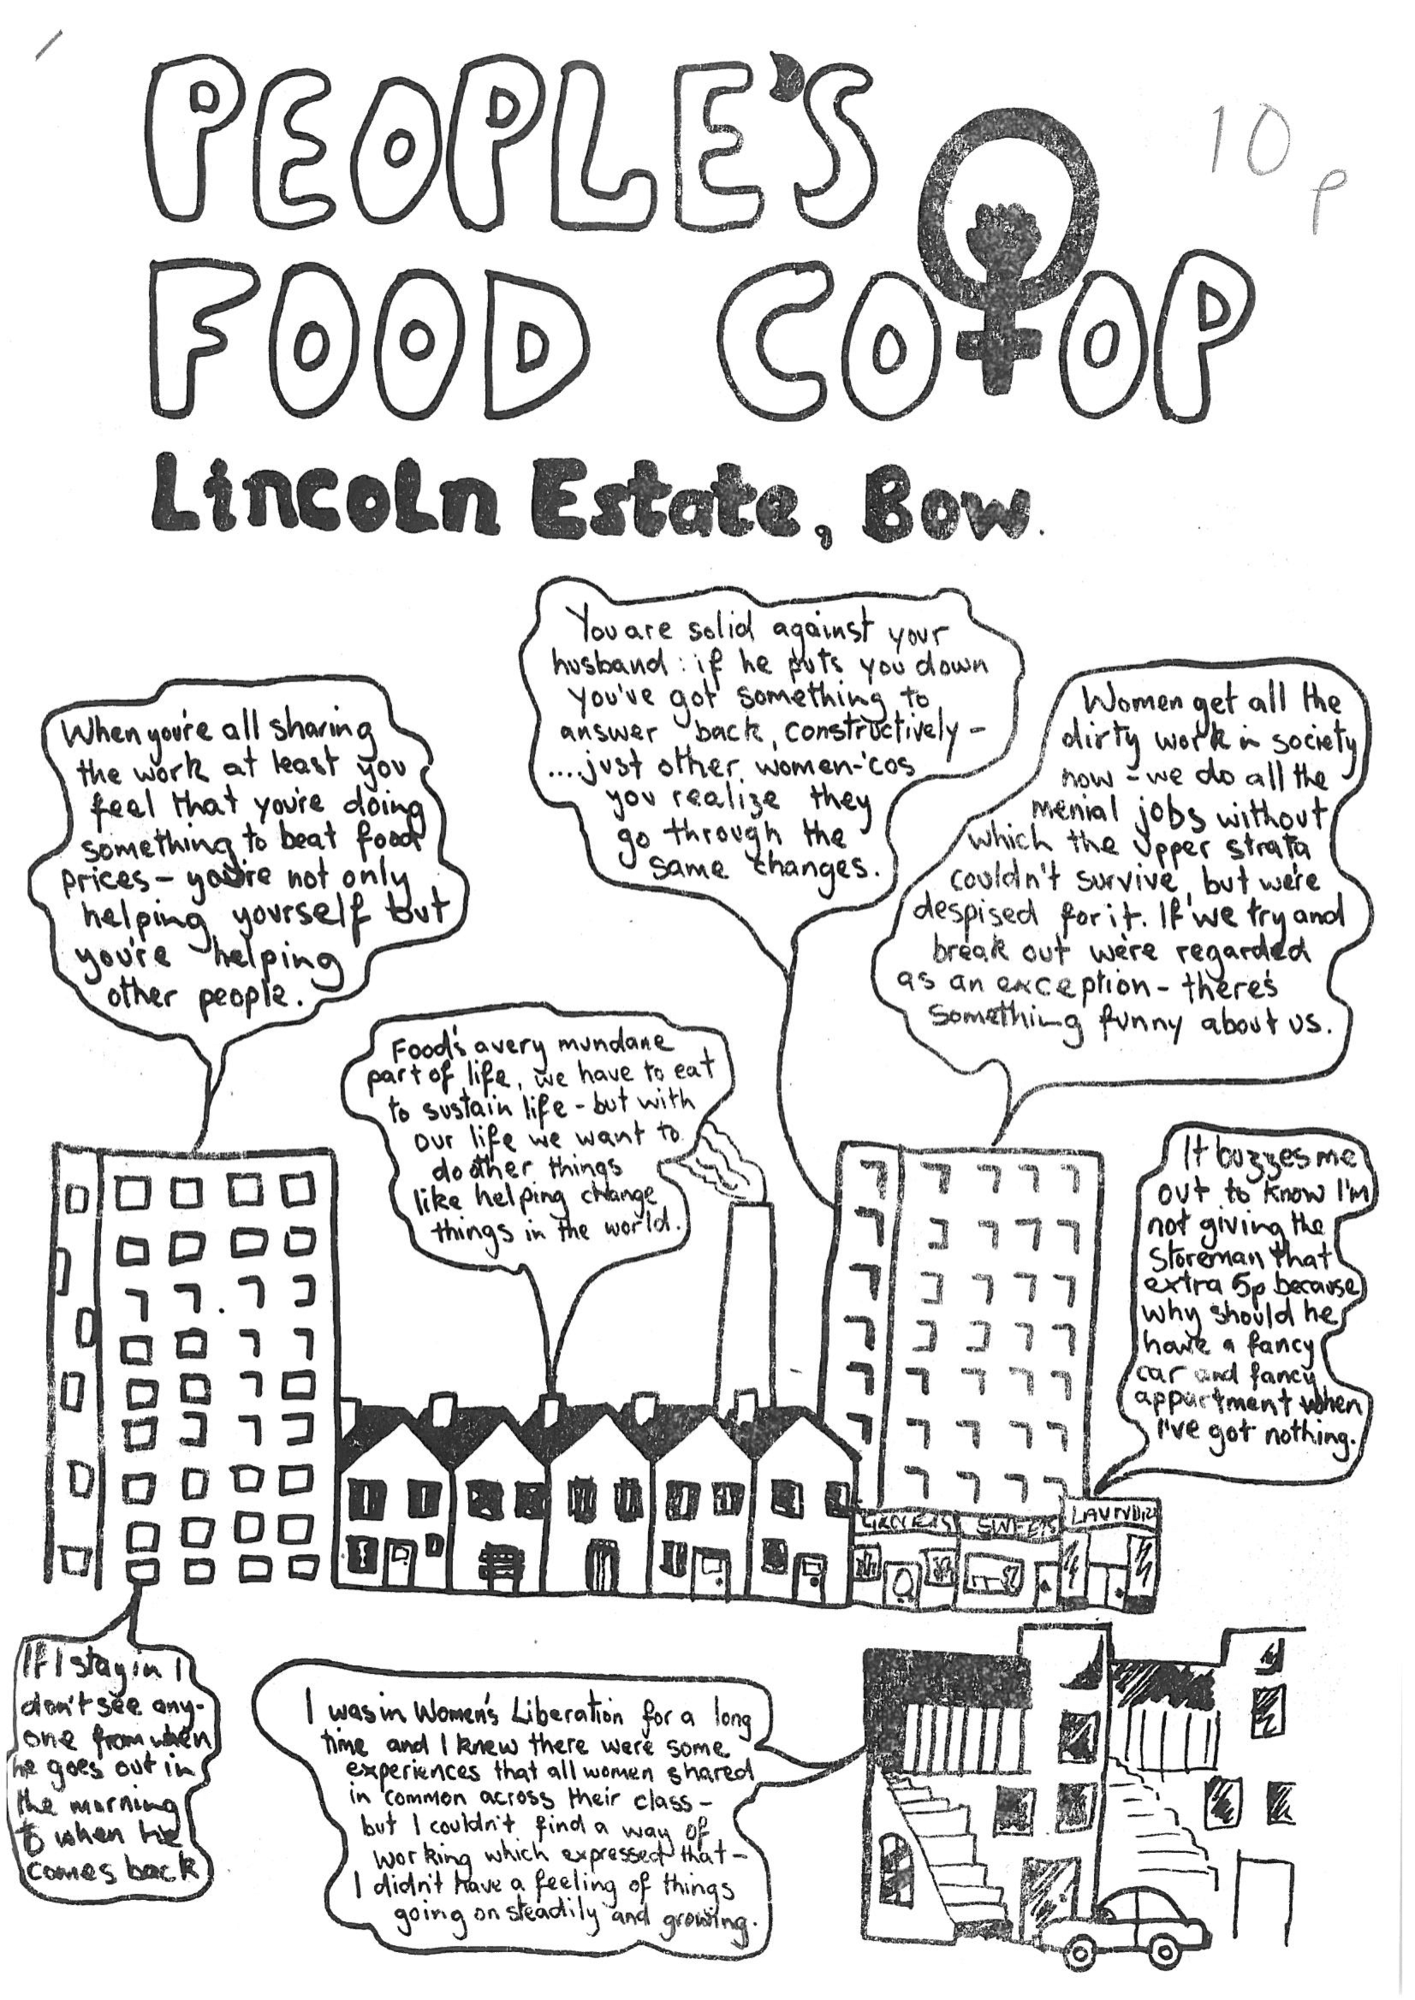 PEOPLE'S
10p
FOOD CO OP
Lincoln Estate, Bow.
You are solid against your
husband: if he puts you down
you've got something to
answer back, constructively –
....just other women-'cos
you realize they
go through the
same changes.
When you're all sharing
the work at least you
feel that you're doing
something to beat food
prices – you're not only
helping yourself but
you're helping
other people.
Women get all the
dirty work in society
now – we do all the
menial jobs without
which the upper strata
couldn't survive, but we're
despised for it. If we try and
break out we're regarded
as an exception – there's
something funny about us.
Food's a very mundane
part of life, we have to eat
to sustain life – but with
our life we want to
do other things
like helping change
things in the world.
It buzzes me
out to know I'm
not giving the
storeman that
extra 5p because
why should he
have a fancy
car and fancy
appartment when
I've got nothing.
GROCERS SWEETS LAUNDR
If I stay in I
don't see any-
one from when
he goes out in
the morning
to when he
comes back
I was in Women's Liberation for a long
time and I knew there were some
experiences that all women shared
in common across their class –
but I couldn't find a way of
working which expressed that –
I didn't have a feeling of things
going on steadily and growing.